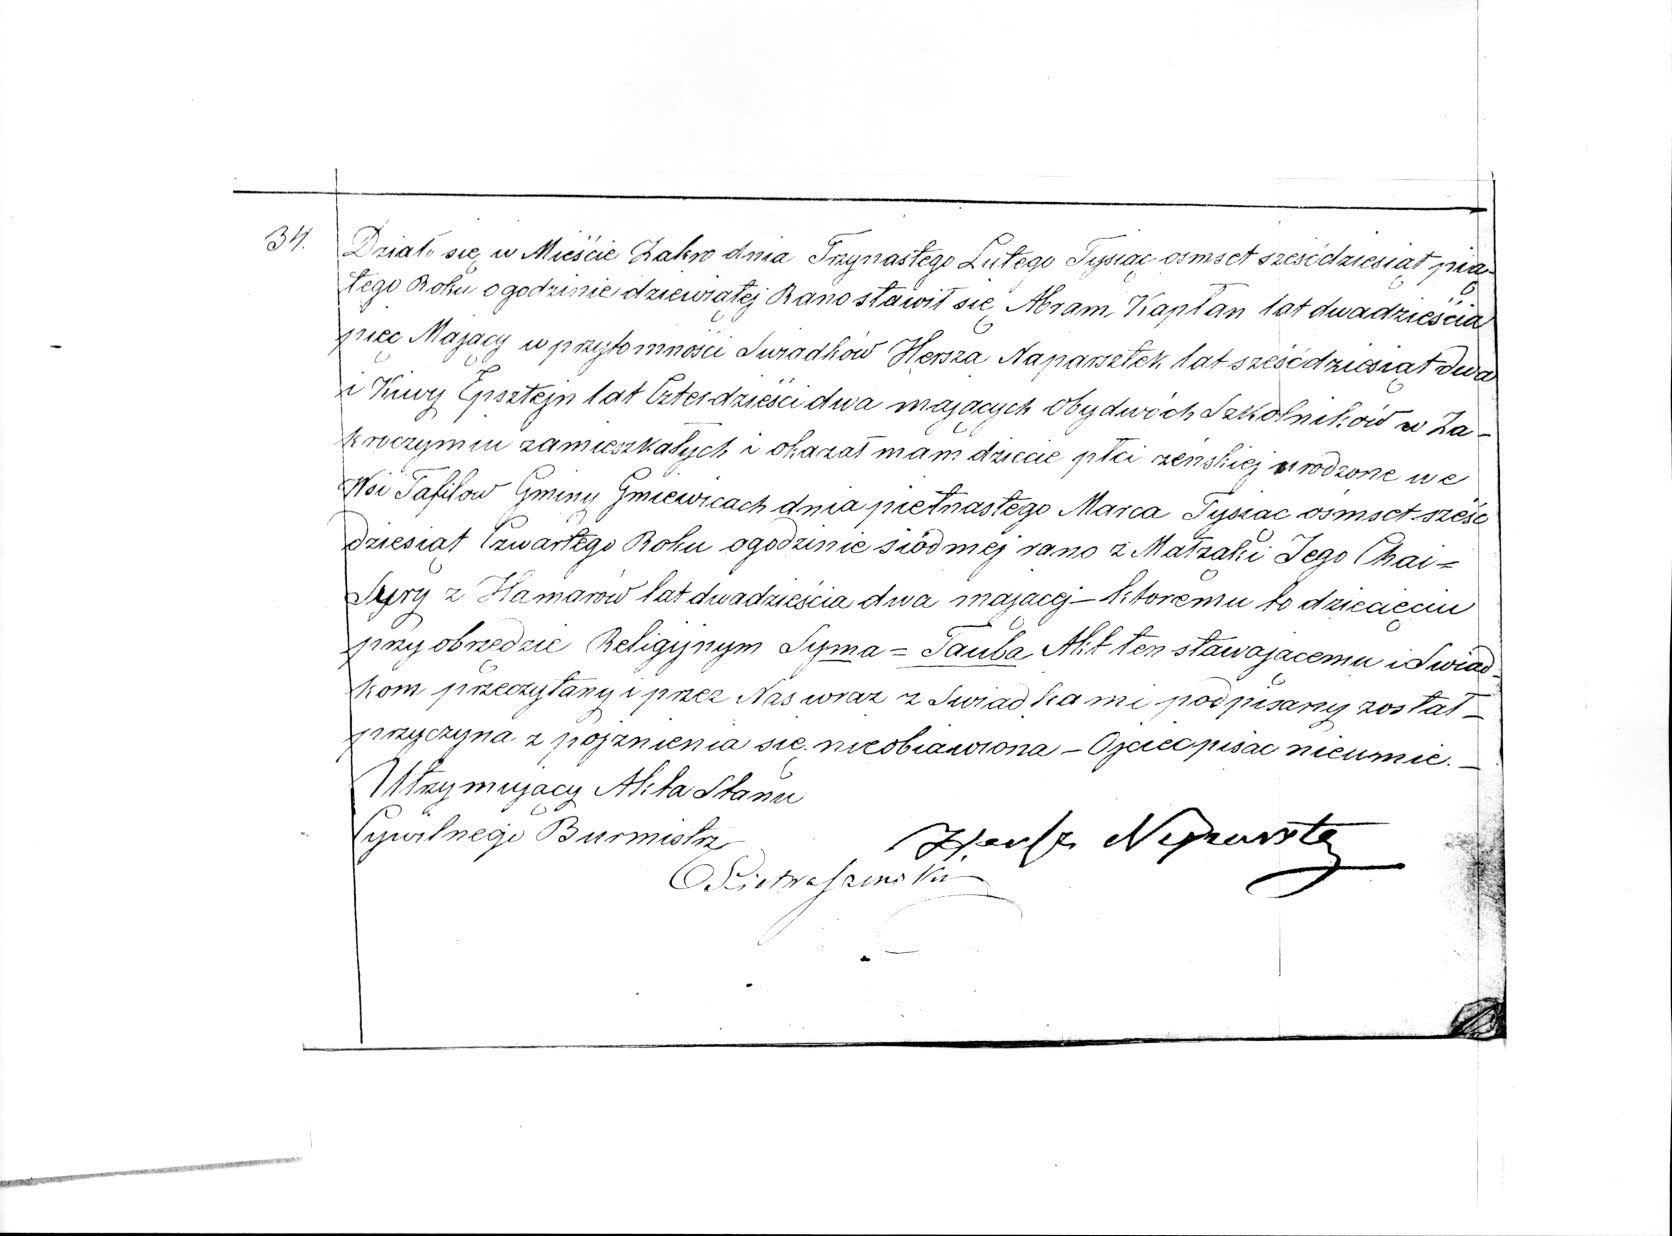 34.
Działo się w Mieście Zakro dnia Trzynastego Lutego Tysiąc osmset sześćdziesiąt pią-
tego Roku o godzinie dziewiątej Rano stawił się Abram Kapłan lat dwadzieścia
pięc Mający w przytomności Swiadków Hersza Naparstek lat sześćdziesiąt dwa
i Kiwy Epsztejn lat Czterdzieści dwa mających Obydwóch Szkolników w Za-
kroczymiu zamieszkałych i okazał nam dziecie płci zeńskiej urodzone we
Wsi Tafilow Gminy Gmiewicach dnia pietnastego Marca Tysiac ośmset sześc
dziesiąt Czwartego Roku o godzinie siódmej rano z Małząki Jego Chai=
Sury z Hamarów lat dwadzieścia dwa mającej – ktoremu to dziecięciu
przy obrzędzie Religijnym Syma = Tauba Akt ten stawającemu i Swiad-
kom przeczytany i przez Nas wraz z Swiadkami podpisany został –
przyczyna z pojznienia się nieobiawiona – Ojciec pisac nieumie. –
Utrzymujący Akta Stanu
Cywilnego Burmistrz